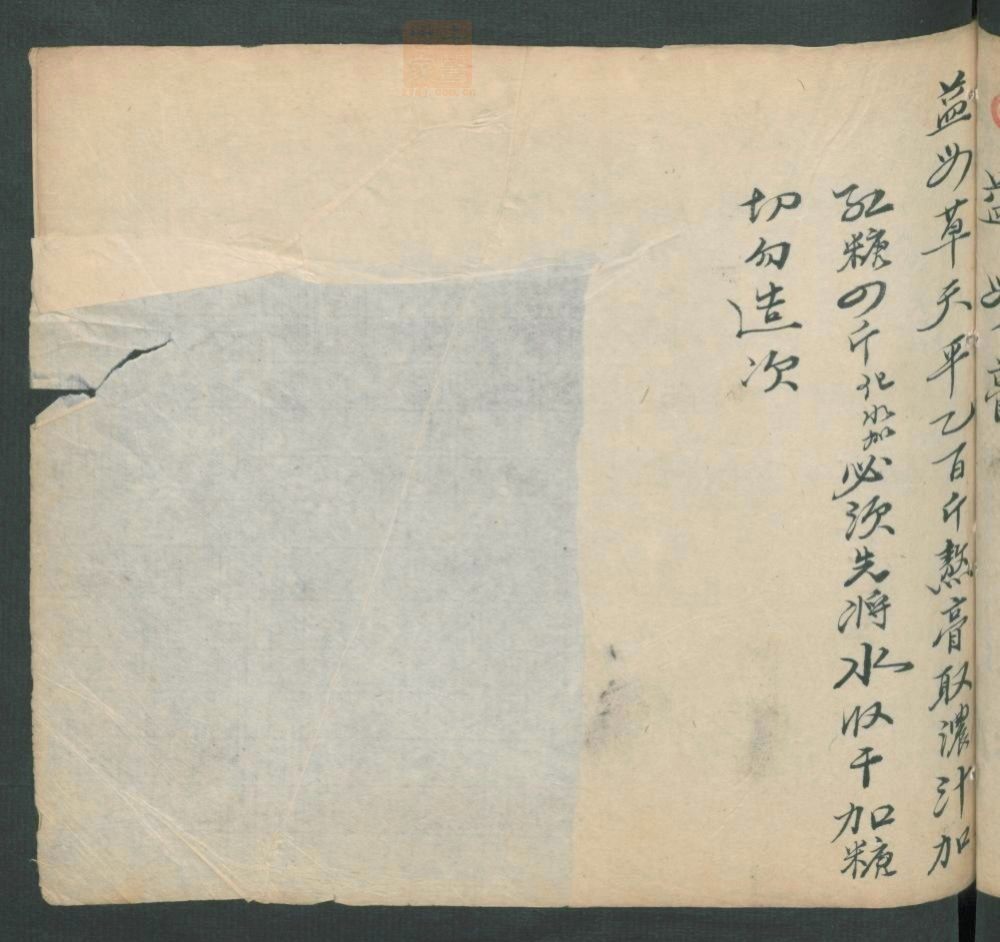 益母草天平乙百斤熬膏取濃汁加
红糖四斤化水加必须先将水收干加糖
切勿造次